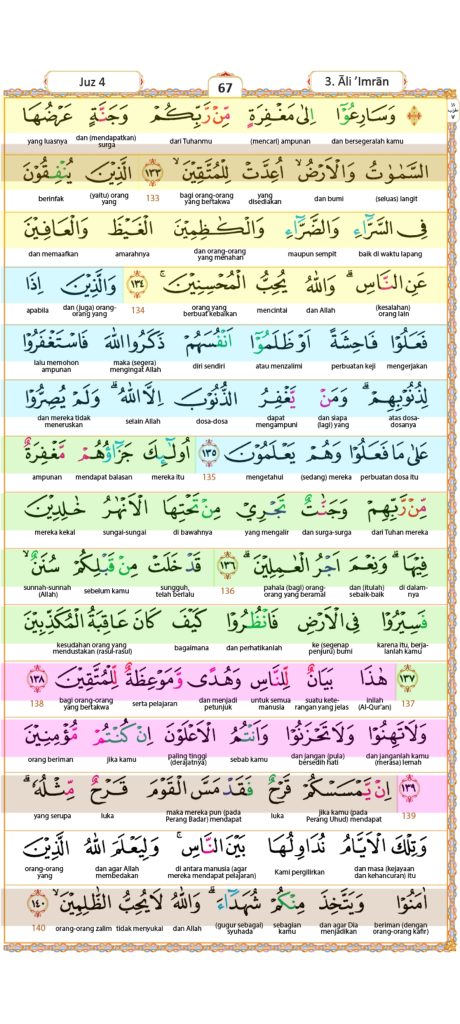 Juz 4
67
3. Āli ‘Imrān
وَسَارِعُوْٓا اِلٰى مَغْفِرَةٍ مِّنْ رَّبِّكُمْ وَجَنَّةٍ عَرْضُهَا
dan bersegeralah kamu (mencari) ampunan dari Tuhanmu dan (mendapatkan) surga yang luasnya
السَّمٰوٰتُ وَالْاَرْضُۙ اُعِدَّتْ لِلْمُتَّقِيْنَۙ ١٣٣ الَّذِيْنَ يُنْفِقُوْنَ
(seluas) langit dan bumi yang disediakan bagi orang-orang yang bertakwa 133 (yaitu) orang yang berinfak
فِى السَّرَّۤاءِ وَالضَّرَّۤاءِ وَالْكَاظِمِيْنَ الْغَيْظَ وَالْعَافِيْنَ
baik di waktu lapang maupun sempit dan orang-orang yang menahan amarahnya dan memaafkan
عَنِ النَّاسِۗ وَاللّٰهُ يُحِبُّ الْمُحْسِنِيْنَۚ ١٣٤ وَالَّذِيْنَ اِذَا
(kesalahan) orang lain dan Allah mencintai orang yang berbuat kebaikan 134 dan (juga) orang-orang yang apabila
فَعَلُوْا فَاحِشَةً اَوْ ظَلَمُوْٓا اَنْفُسَهُمْ ذَكَرُوا اللّٰهَ فَاسْتَغْفَرُوْا
mengerjakan perbuatan keji atau menzalimi diri sendiri maka (segera) mengingat Allah lalu memohon ampunan
لِذُنُوْبِهِمْۗ وَمَنْ يَّغْفِرُ الذُّنُوْبَ اِلَّا اللّٰهُۗ وَلَمْ يُصِرُّوْا
atas dosa-dosanya dan siapa (lagi) yang dapat mengampuni dosa-dosa selain Allah dan mereka tidak meneruskan
عَلٰى مَا فَعَلُوْا وَهُمْ يَعْلَمُوْنَ ١٣٥ اُولٰۤىِٕكَ جَزَاۤؤُهُمْ مَّغْفِرَةٌ
perbuatan dosa itu (sedang) mereka mengetahui 135 mereka itu mendapat balasan ampunan
مِّنْ رَّبِّهِمْ وَجَنّٰتٌ تَجْرِيْ مِنْ تَحْتِهَا الْاَنْهٰرُ خٰلِدِيْنَ
dari Tuhan mereka dan surga-surga yang mengalir di bawahnya sungai-sungai mereka kekal
فِيْهَاۗ وَنِعْمَ اَجْرُ الْعٰمِلِيْنَۗ ١٣٦ قَدْ خَلَتْ مِنْ قَبْلِكُمْ سُنَنٌۙ
di dalam-nya dan (itulah) sebaik-baik pahala (bagi) orang-orang yang beramal 136 sungguh, telah berlalu sebelum kamu sunnah-sunnah (Allah)
فَسِيْرُوْا فِى الْاَرْضِ فَانْظُرُوْا كَيْفَ كَانَ عَاقِبَةُ الْمُكَذِّبِيْنَ
karena itu, berja-lanlah kamu ke (segenap penjuru) bumi dan perhatikanlah bagaimana kesudahan orang yang mendustakan (rasul-rasul)
١٣٧ هٰذَا بَيَانٌ لِّلنَّاسِ وَهُدًى وَّمَوْعِظَةٌ لِّلْمُتَّقِيْنَ ١٣٨
137 inilah (Al-Qur'an) suatu kete-rangan yang jelas untuk semua manusia dan menjadi petunjuk serta pelajaran bagi orang-orang yang bertakwa 138
وَلَا تَهِنُوْا وَلَا تَحْزَنُوْا وَاَنْتُمُ الْاَعْلَوْنَ اِنْ كُنْتُمْ مُّؤْمِنِيْنَ
dan janganlah kamu (merasa) lemah dan jangan (pula) bersedih hati paling tinggi (derajatnya) jika kamu orang beriman
١٣٩ اِنْ يَّمْسَسْكُمْ قَرْحٌ فَقَدْ مَسَّ الْقَوْمَ قَرْحٌ مِّثْلُهٗۗ
139 jika kamu (pada Perang Uhud) mendapat luka maka mereka pun (pada Perang Badar) mendapat luka yang serupa
وَتِلْكَ الْاَيَّامُ نُدَاوِلُهَا بَيْنَ النَّاسِۚ وَلِيَعْلَمَ اللّٰهُ الَّذِيْنَ
dan masa (kejayaan dan kehancuran) itu Kami pergilirkan di antara manusia (agar mereka mendapat pelajaran) dan agar Allah membedakan orang-orang yang
اٰمَنُوْا وَيَتَّخِذَ مِنْكُمْ شُهَدَاۤءَۗ وَاللّٰهُ لَا يُحِبُّ الظّٰلِمِيْنَۙ ١٤٠
beriman (dengan orang-orang kafir) dan agar Dia menjadikan sebagian kamu (gugur sebagai) syuhada dan Allah tidak menyukai orang-orang zalim 140